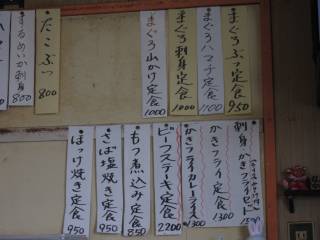 まぐろぶつ定食 950
まぐろハマチ定食 1100
まぐろ刺身定食 1000
まぐろ山かけ定食 1000
たこぶつ 800
するめいか刺身 800
刺身かきフライセット
かきフライ定食 1300
かきフライカレーライス 1300
ビーフステーキ定食 2200
もつ煮込み定食 850
さば塩焼き定食 950
ほっけ焼き定食 950